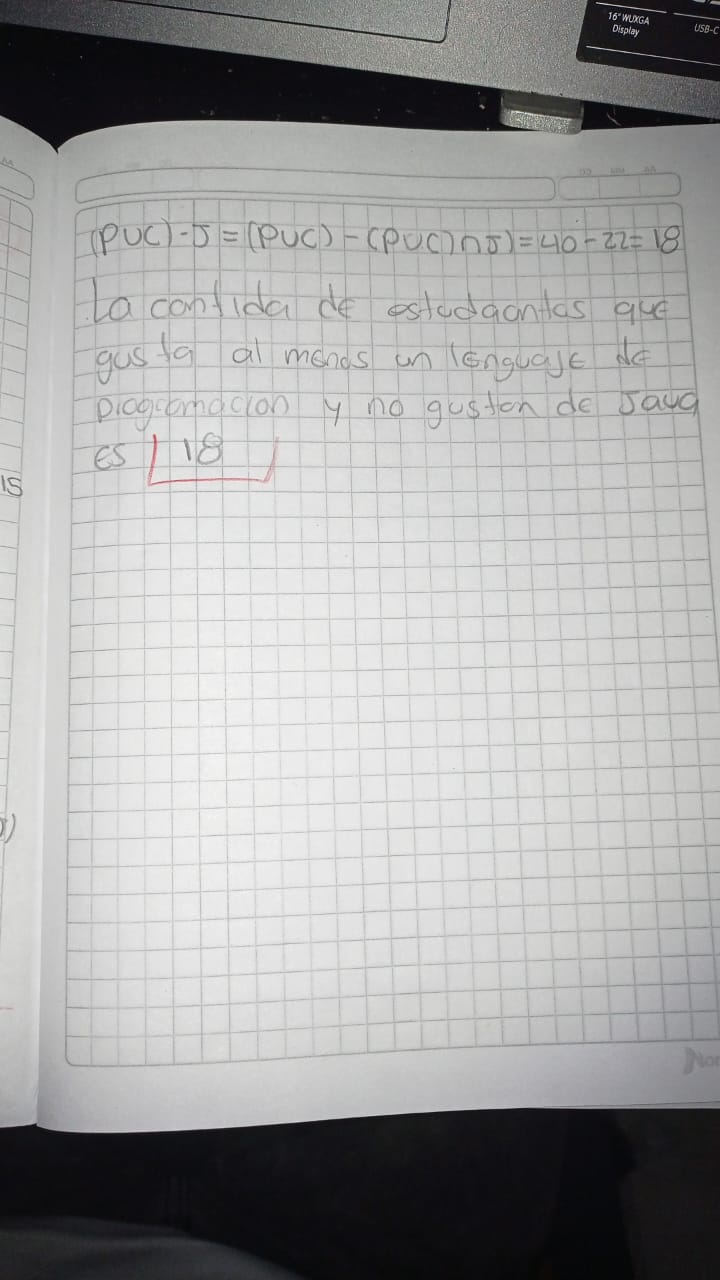 16" WUXGA
Display
USB-C
(PUC)-J=(PUC)-(PUC)∩J)=40-22=18
La contida de estudgantas que
gusta al menos un lenguaje de
programacion y no guston de Java
es 18
15
Nor